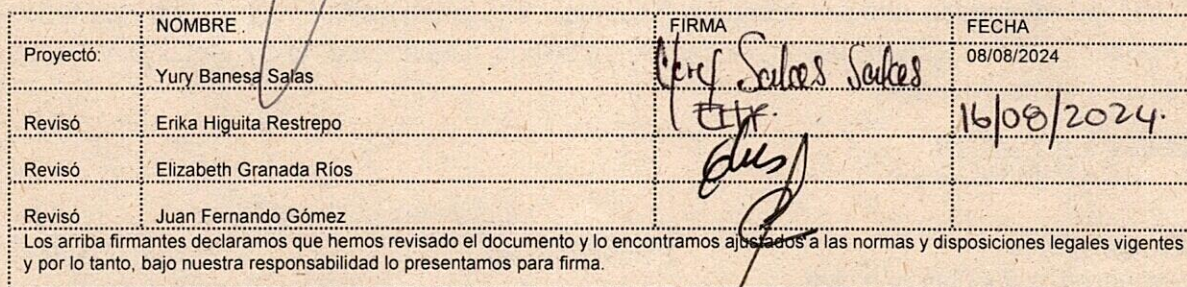 NOMBRE FIRMA FECHA
Proyectó: Yury Banesa Salas Salas Salas 08/08/2024
Revisó Erika Higuita Restrepo 16/08/2024.
Revisó Elizabeth Granada Ríos
Revisó Juan Fernando Gómez
Los arriba firmantes declaramos que hemos revisado el documento y lo encontramos ajustados a las normas y disposiciones legales vigentes
y por lo tanto, bajo nuestra responsabilidad lo presentamos para firma.